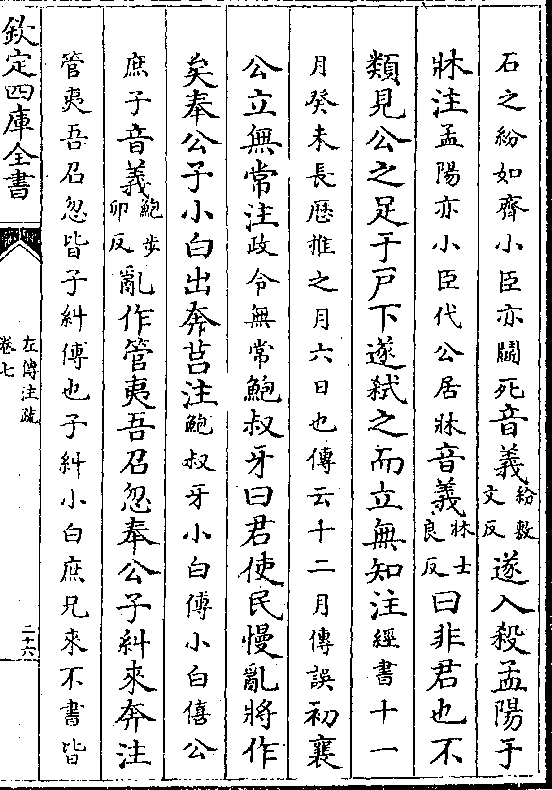 石之紛如齊小臣亦鬭死音義紛敷文反遂入殺孟陽于
牀注孟陽亦小臣代公居牀音義牀士良反曰非君也不
類見公之足于戸下遂弑之而立無知注經書十一
月癸未長厯推之月六日也傳云十二月傳誤初襄
公立無常注政令無常鮑叔牙曰君使民慢亂將作
矣奉公子小白出奔莒注鮑叔牙小白傅小白僖公
庶子音義鮑步卯反亂作管夷吾召忽奉公子糾來奔注
管夷吾召忽皆子糾傅也子糾小白庶兄來不書皆
欽定四庫全書
左傳注疏
卷七
二十六